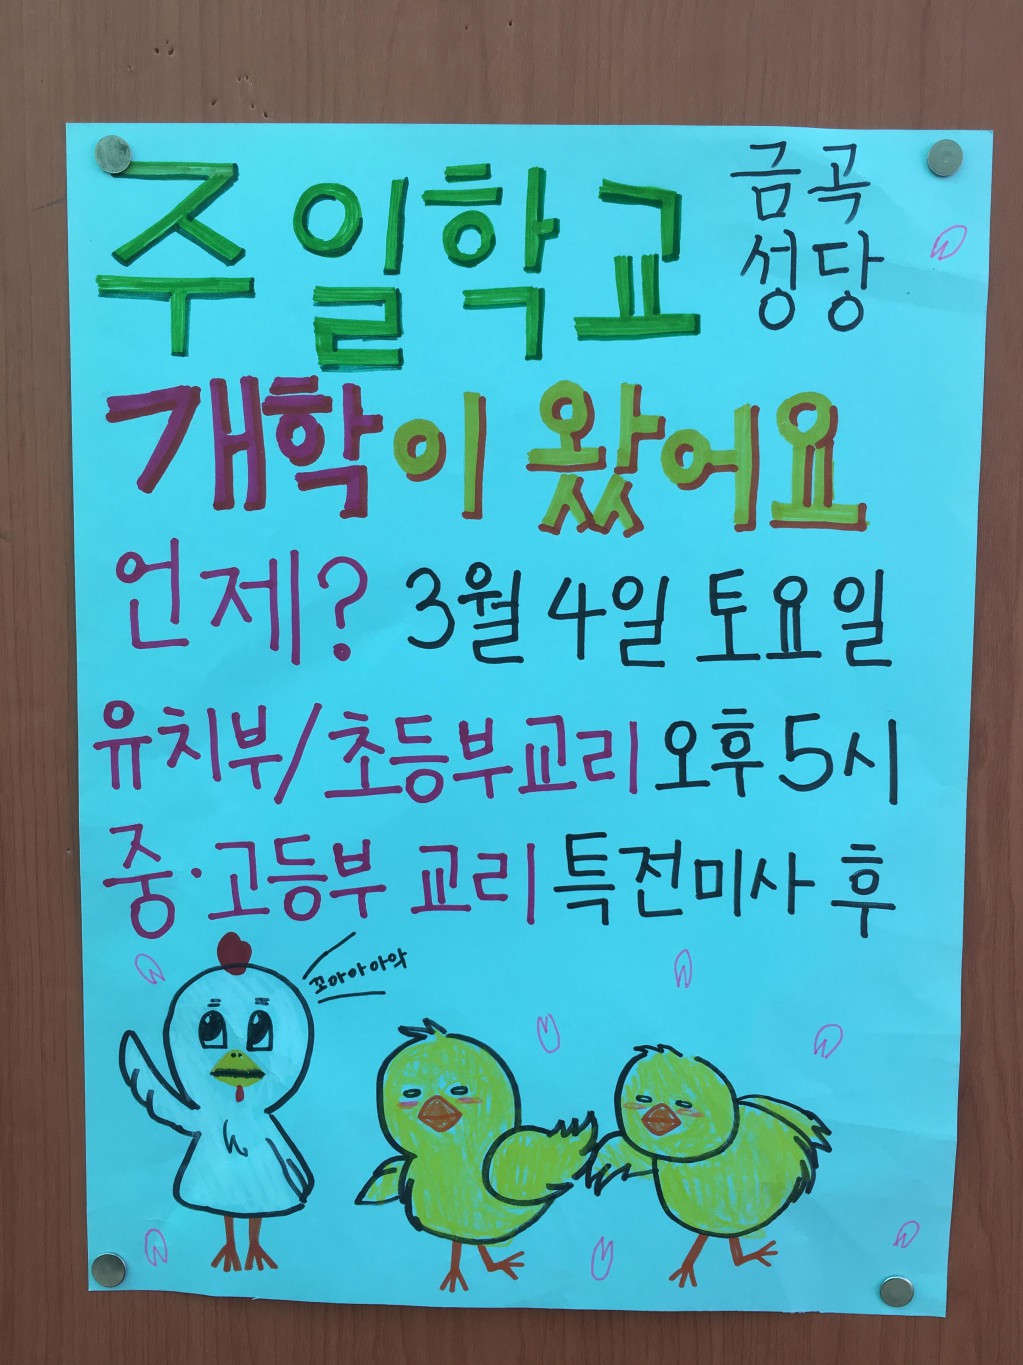 주일학교
금곡
성당
개학이 왔어요
언제? 3월 4일 토요일
유치부/초등부교리 오후 5시
중·고등부 교리 특전미사 후
꼬아아아악